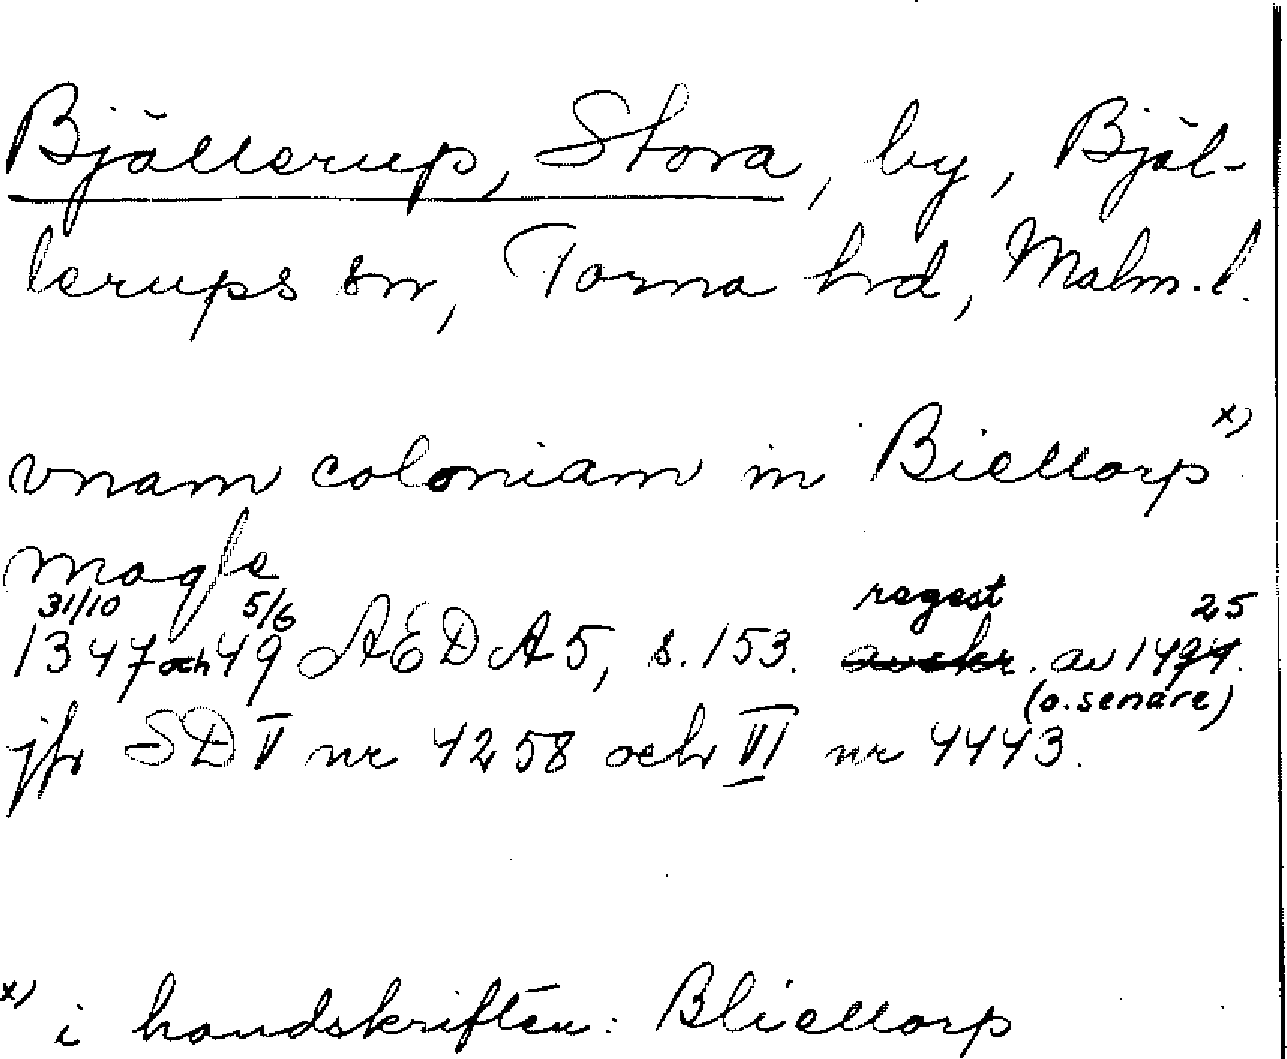 Bjällerup, Stora, by, Bjäl-
lerups sn, Torna hd, Malm. l.
vnam coloniam in Biellorp x)
magle
31/10 5/6 regest 25
1347 och 49 AED A5, s. 153. avskr. av 1494.
(o. senare)
jfr SD V nr 4258 och VI nr 4443.
x) i handskriften: Bliellorp